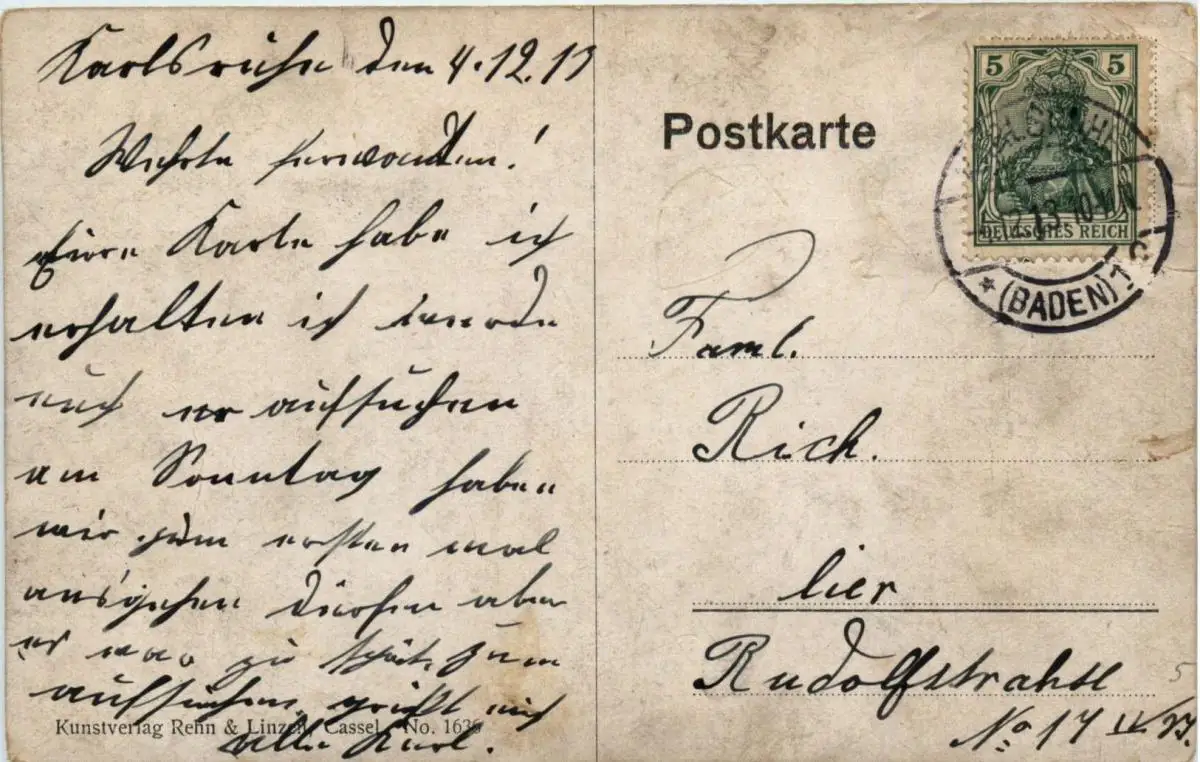 Karlsruhe den 4.12.13
Wehrte Ferwandten!
Eure Karte habe ich
erhalten ich werde
euch er aufsuchen
am Sonntag haben
wir zum ersten mal
ausgehen dürfen aber
es war zu spät zum
aufsuchen grüßt euch
alle Karl.
Kunstverlag Rehn & Linzen, Cassel. No. 1636
Postkarte
5 5
DEUTSCHES REICH
12.13.10
*(BADEN)1
Faml.
Rich.
hier
Rudolfstrahse
No 14 IV